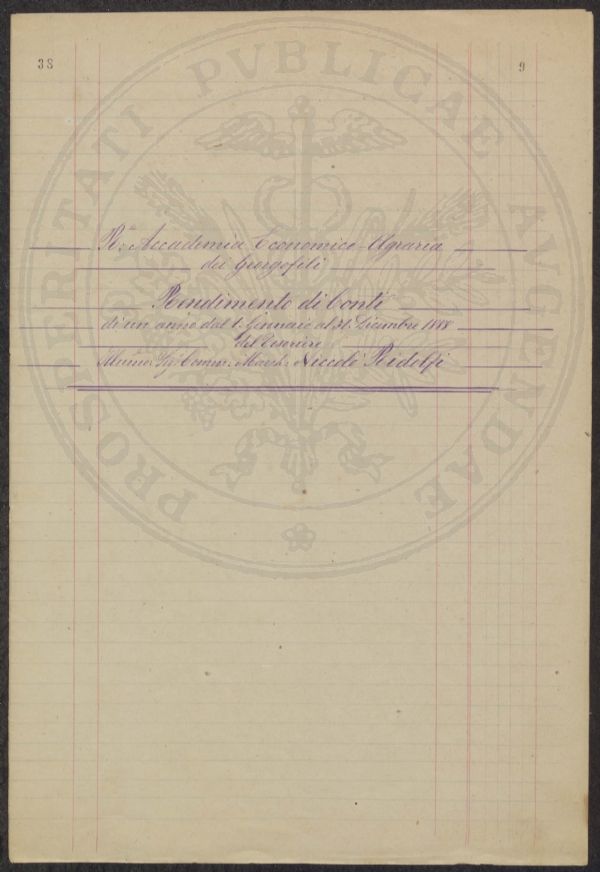 38
9
PROSPERITATI PVBLICAE AVGENDAE
R.ª Accademia Economico-Agraria
dei Georgofili
Rendimento di Conti
di un anno dal 1. Gennaio al 31. Dicembre 1888
del Tesoriere
Illmo. Sig. Comm. March. Niccolò Ridolfi